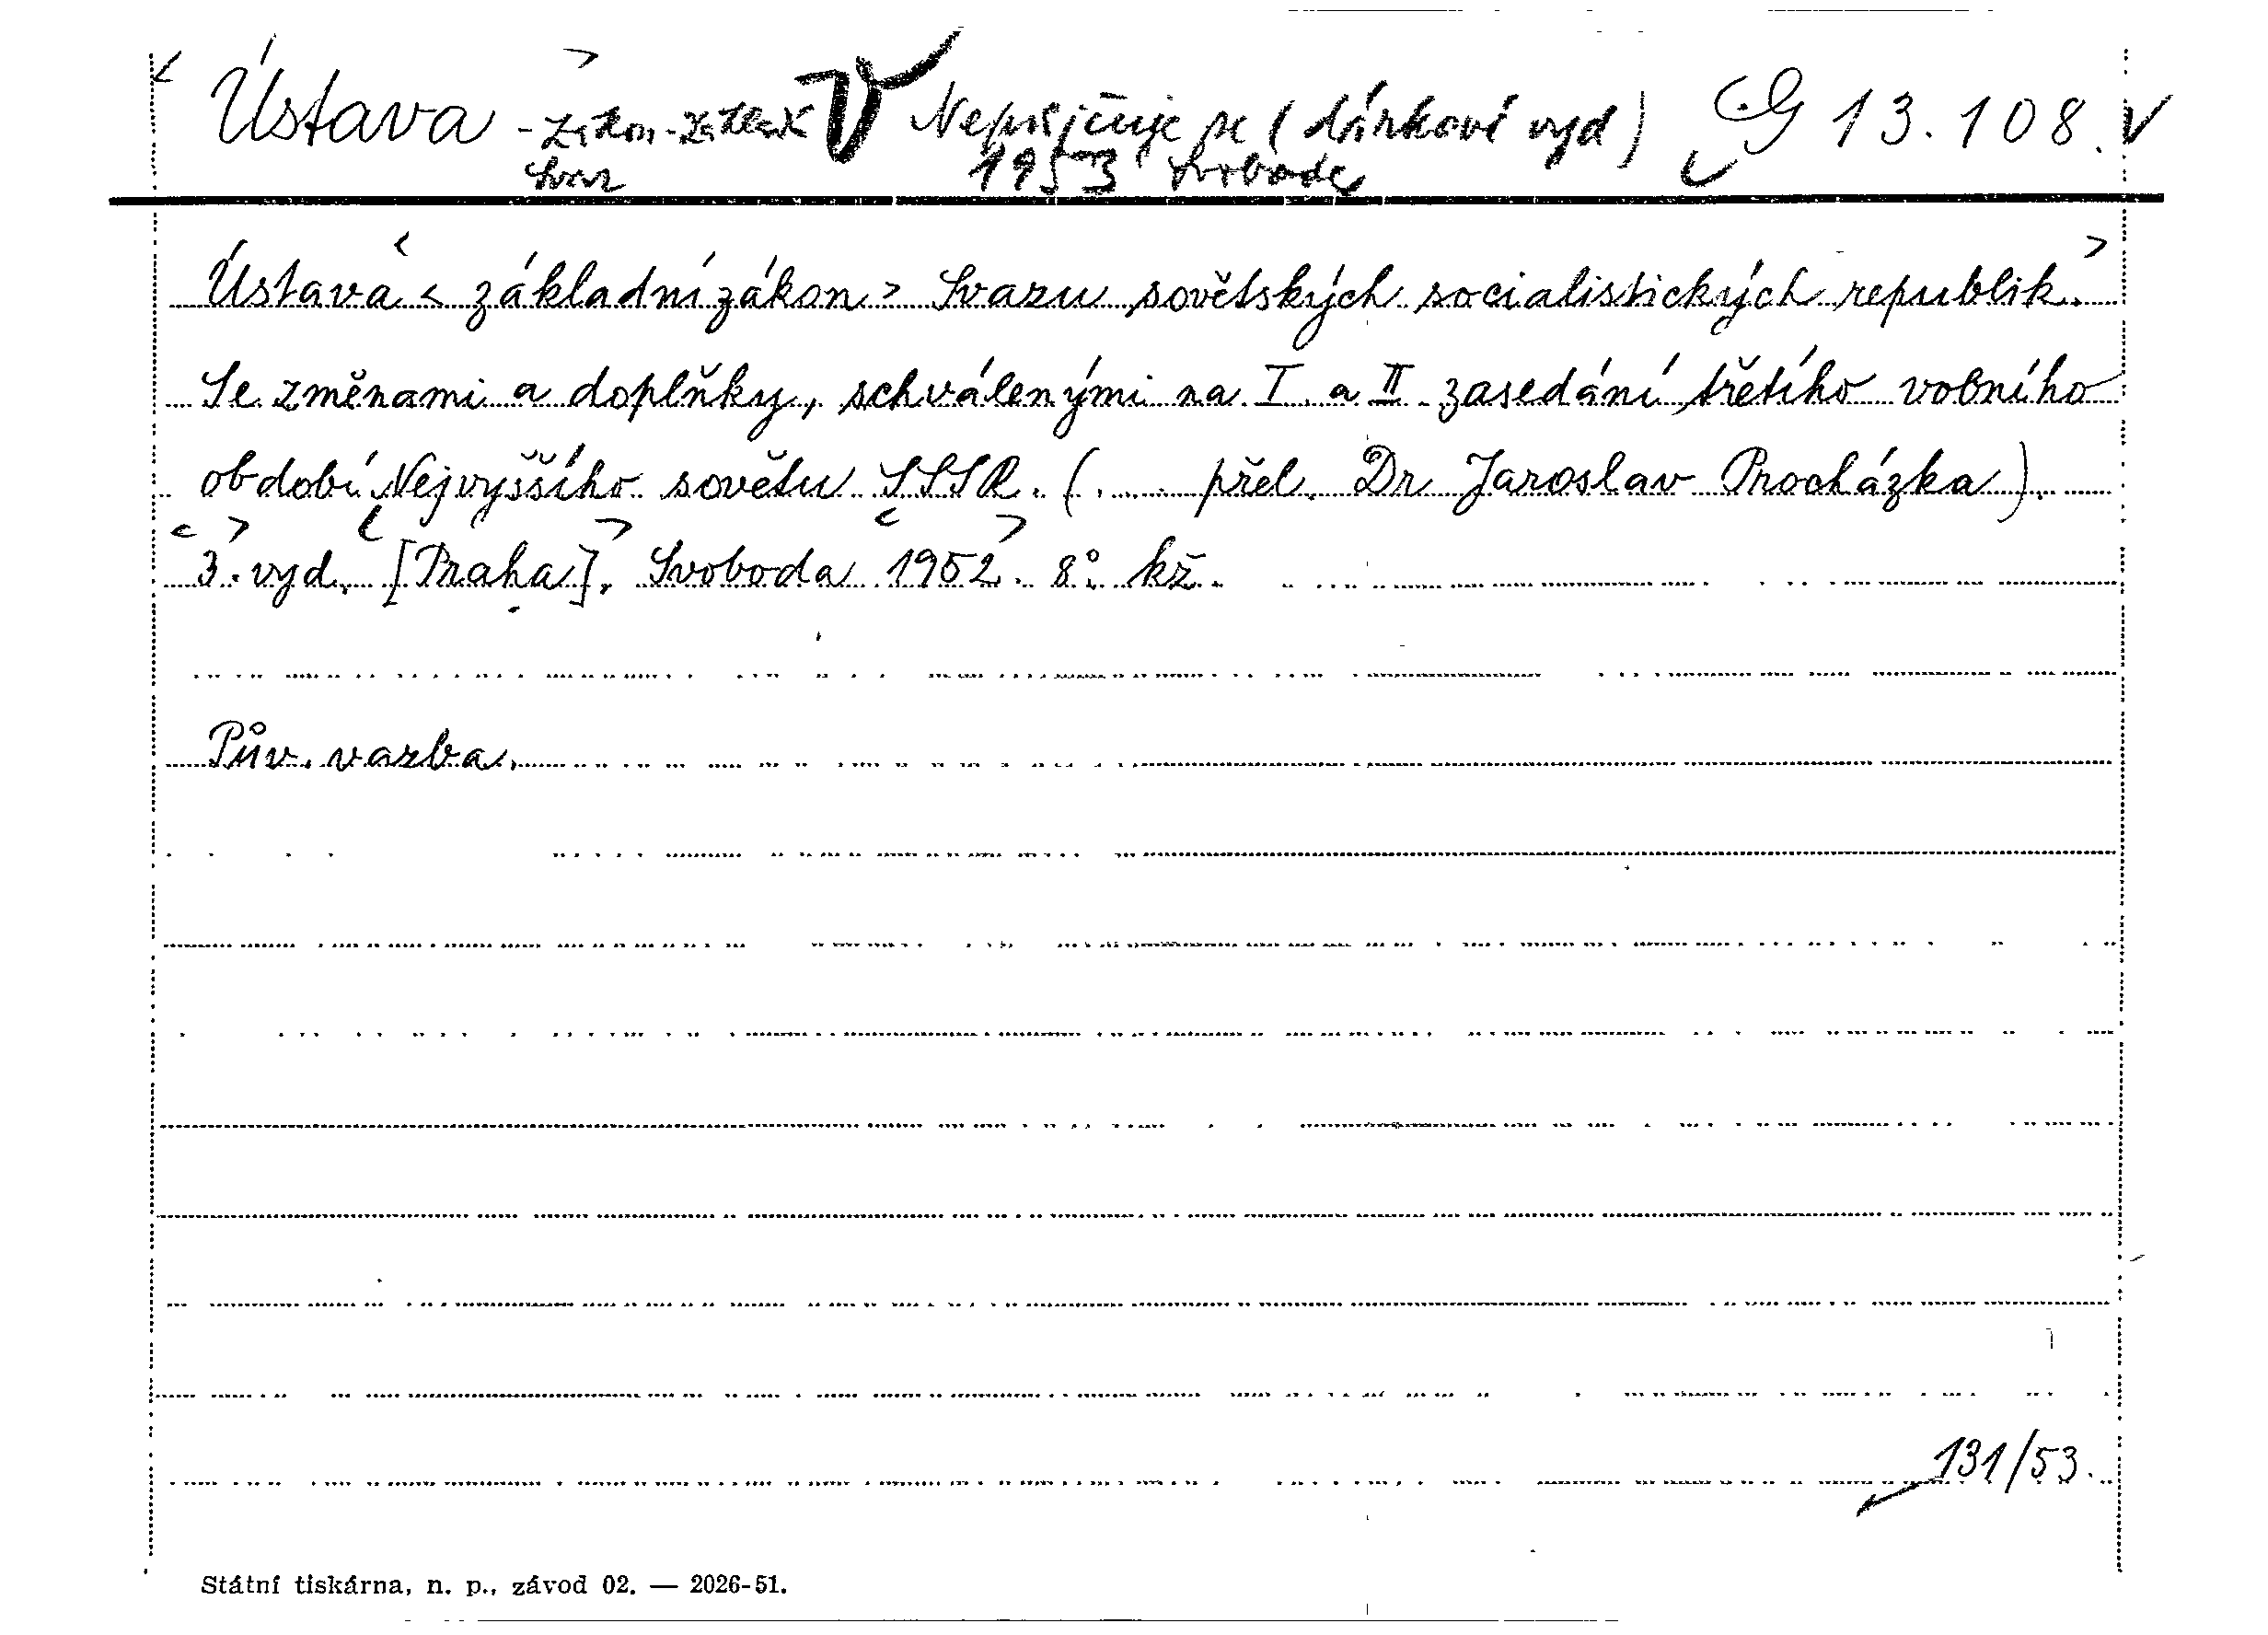 Ústava - zákon - základ V Nepůjčuje se (dárkové vyd) G 13.108.
Svaz 1953 Svoboda
Ústava < základní zákon > Svazu sovětských socialistických republik.
Se změnami a doplňky, schválenými na I. a II. zasedání třetího volního
období Nejvyššího sovětu SSSR. (... přel. Dr Jaroslav Procházka).
3. vyd. [Praha], Svoboda 1952. 8°. kž.
Pův. vazba.
131/53.
Státní tiskárna, n. p., závod 02. — 2026-51.